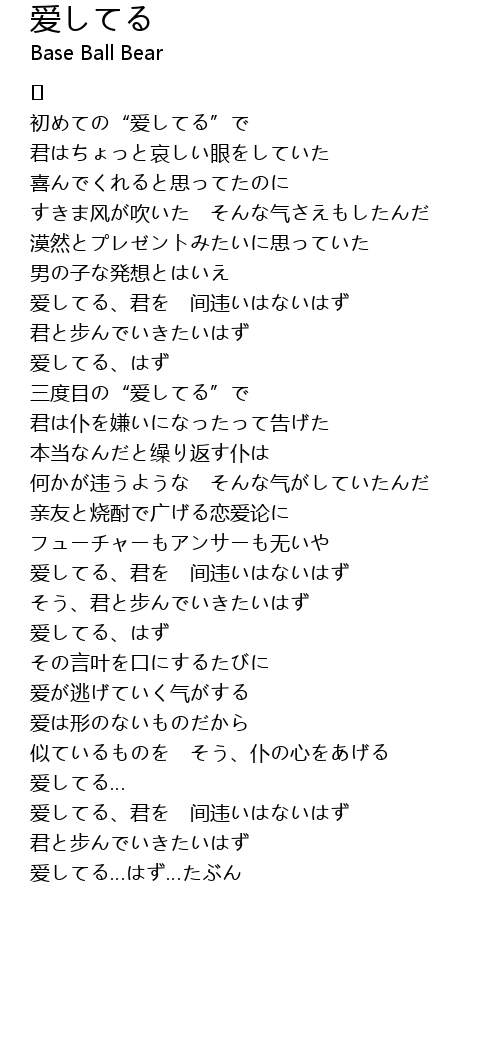 爱してる
Base Ball Bear
初めての“爱してる”で
君はちょっと哀しい眼をしていた
喜んでくれると思ってたのに
すきま风が吹いた　そんな气さえもしたんだ
漠然とプレゼントみたいに思っていた
男の子な発想とはいえ
爱してる、君を　间违いはないはず
君と歩んでいきたいはず
爱してる、はず
三度目の“爱してる”で
君は仆を嫌いになったって告げた
本当なんだと缲り返す仆は
何かが违うような　そんな气がしていたんだ
亲友と烧酎で广げる恋爱论に
フューチャーもアンサーも无いや
爱してる、君を　间违いはないはず
そう、君と歩んでいきたいはず
爱してる、はず
その言叶を口にするたびに
爱が逃げていく气がする
爱は形のないものだから
似ているものを　そう、仆の心をあげる
爱してる...
爱してる、君を　间违いはないはず
君と歩んでいきたいはず
爱してる...はず...たぶん